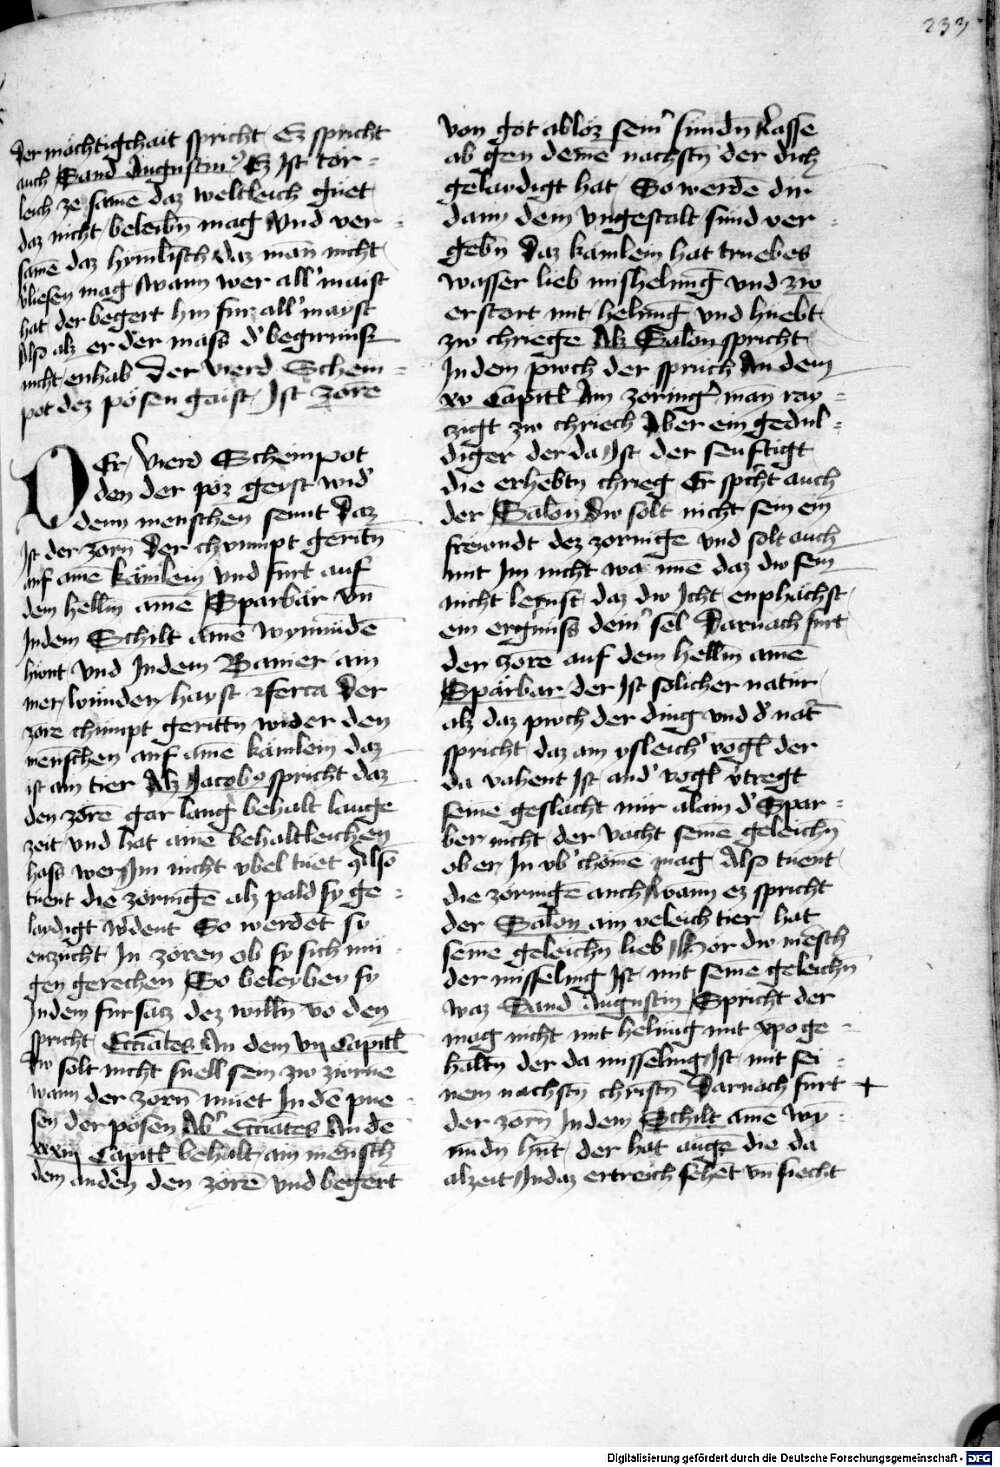 233
der mächtigchait spricht Ez spricht
auch Sand Augustin9 Ez Ist tör=
leich ze samē daz weltleich güet
daz nicht beleibn̄ mag Und ver=
samē daz hymlisch daz man nicht
v̓liesen mag Wann wer all' maist
hat der begert hin fur all' mayst
Also alz er der mäss d' begirnüsz
nicht enhab Der vierd Schein=
pot dez pösen gaist Ist zorē
DEr vierd Scheinpot
den der pöz geyst wid'
denn menschen sennt Daz
Ist der zorn Der chvmpt geritn̄
auf aine kämlein vnd furt auf
dem hellm ainē Sparbär vn̄
Indem Schilt ainē wynnūdē
hūnt Vnd Indem Banier ain
mer wunder hayst
zorē chümpt geritn̄ wider den
menschen auf ainē kämlein daz
ist ain tier Alz Jacob9 spricht daz
den zorē gar lang behalt lange
zeit vnd hat ainē behaltleichen
hass wer Im nicht vbel tüet Also
tuent die zornigē alz pald sy ge=
laydigt w̓dent So werdet sy
enzücht In zoren ob sy sich mü
gen gerechen So beleyben sy
Indem fursatz dez willn̄ vō den
spricht Ecciātes An dem vij Capitl̄
Dw solt nicht snell sein zw zürne
wann der zorn̄ rüet In dē pue
sen der pösen Ab' Ecciātes An dē
xxiij Capitl̄ behalt ain mensch
dem andern̄ den zorē vnd begert
von got abloz sein' sündn̄ Lasse
ab gen deinē nachstn̄ der dich
gelaydigt hat So werdē dir
dann dem vngestalt sünd ver=
gebn̄ Daz kamlein hat truebes
wasser lieb mishelūg vnd zw
erstort mit helūng vnd hüebt
zw chriegē Alz Salon spricht
Indem pwch der sprüch An dem
xv Capitl̄ Ain zoring' man ray=
czigt zw chriech Aber ein gedul=
diger der da Ist der senftigt
die erhebtn̄ chrieg Er sp̓cht auch
der Salon Dw solt nicht sein ein
freẅndt dez zornigē vnd solt auch
mit Im nicht wa nnē daz dw sein
nicht lernst daz dw Icht enphächst
ein ergnüss dein' sel Darnach furt
der zorē auf dem hellm ainē
Spärbar der Ist solicher natur
alz daz pwch der ding vnd d' natr̄
spricht daz ain ysleich' vogl̄ der
da vahent Ist and' vogl̄ v̓tregt
seine geslächt nür alain d' Spar=
ber nicht der vächt seinē geleichn̄
ob er In vb' chömē mag Also tüent
die zornigē auch Wann ez spricht
der Salon ain veleich tier hat
seinē geleichn̄ lieb Hör dw mēsch
der misseling Ist mit seine geleichn̄
waz Sand Augustin Spricht der
mag nicht mit helūng mit xpo ge=
haltn̄ der da misseling Ist mit sei=
nem nachstn̄ christn̄ Darnach furt +
der zorn̄ Indem Schilt ainē wy=
nūdn̄ hūt der hat auge die da
alzeit Indaz ertreich sehēt vn̄ siecht
Digitalisierung gefördert durch die Deutsche Forschungsgemeinschaft - DFG